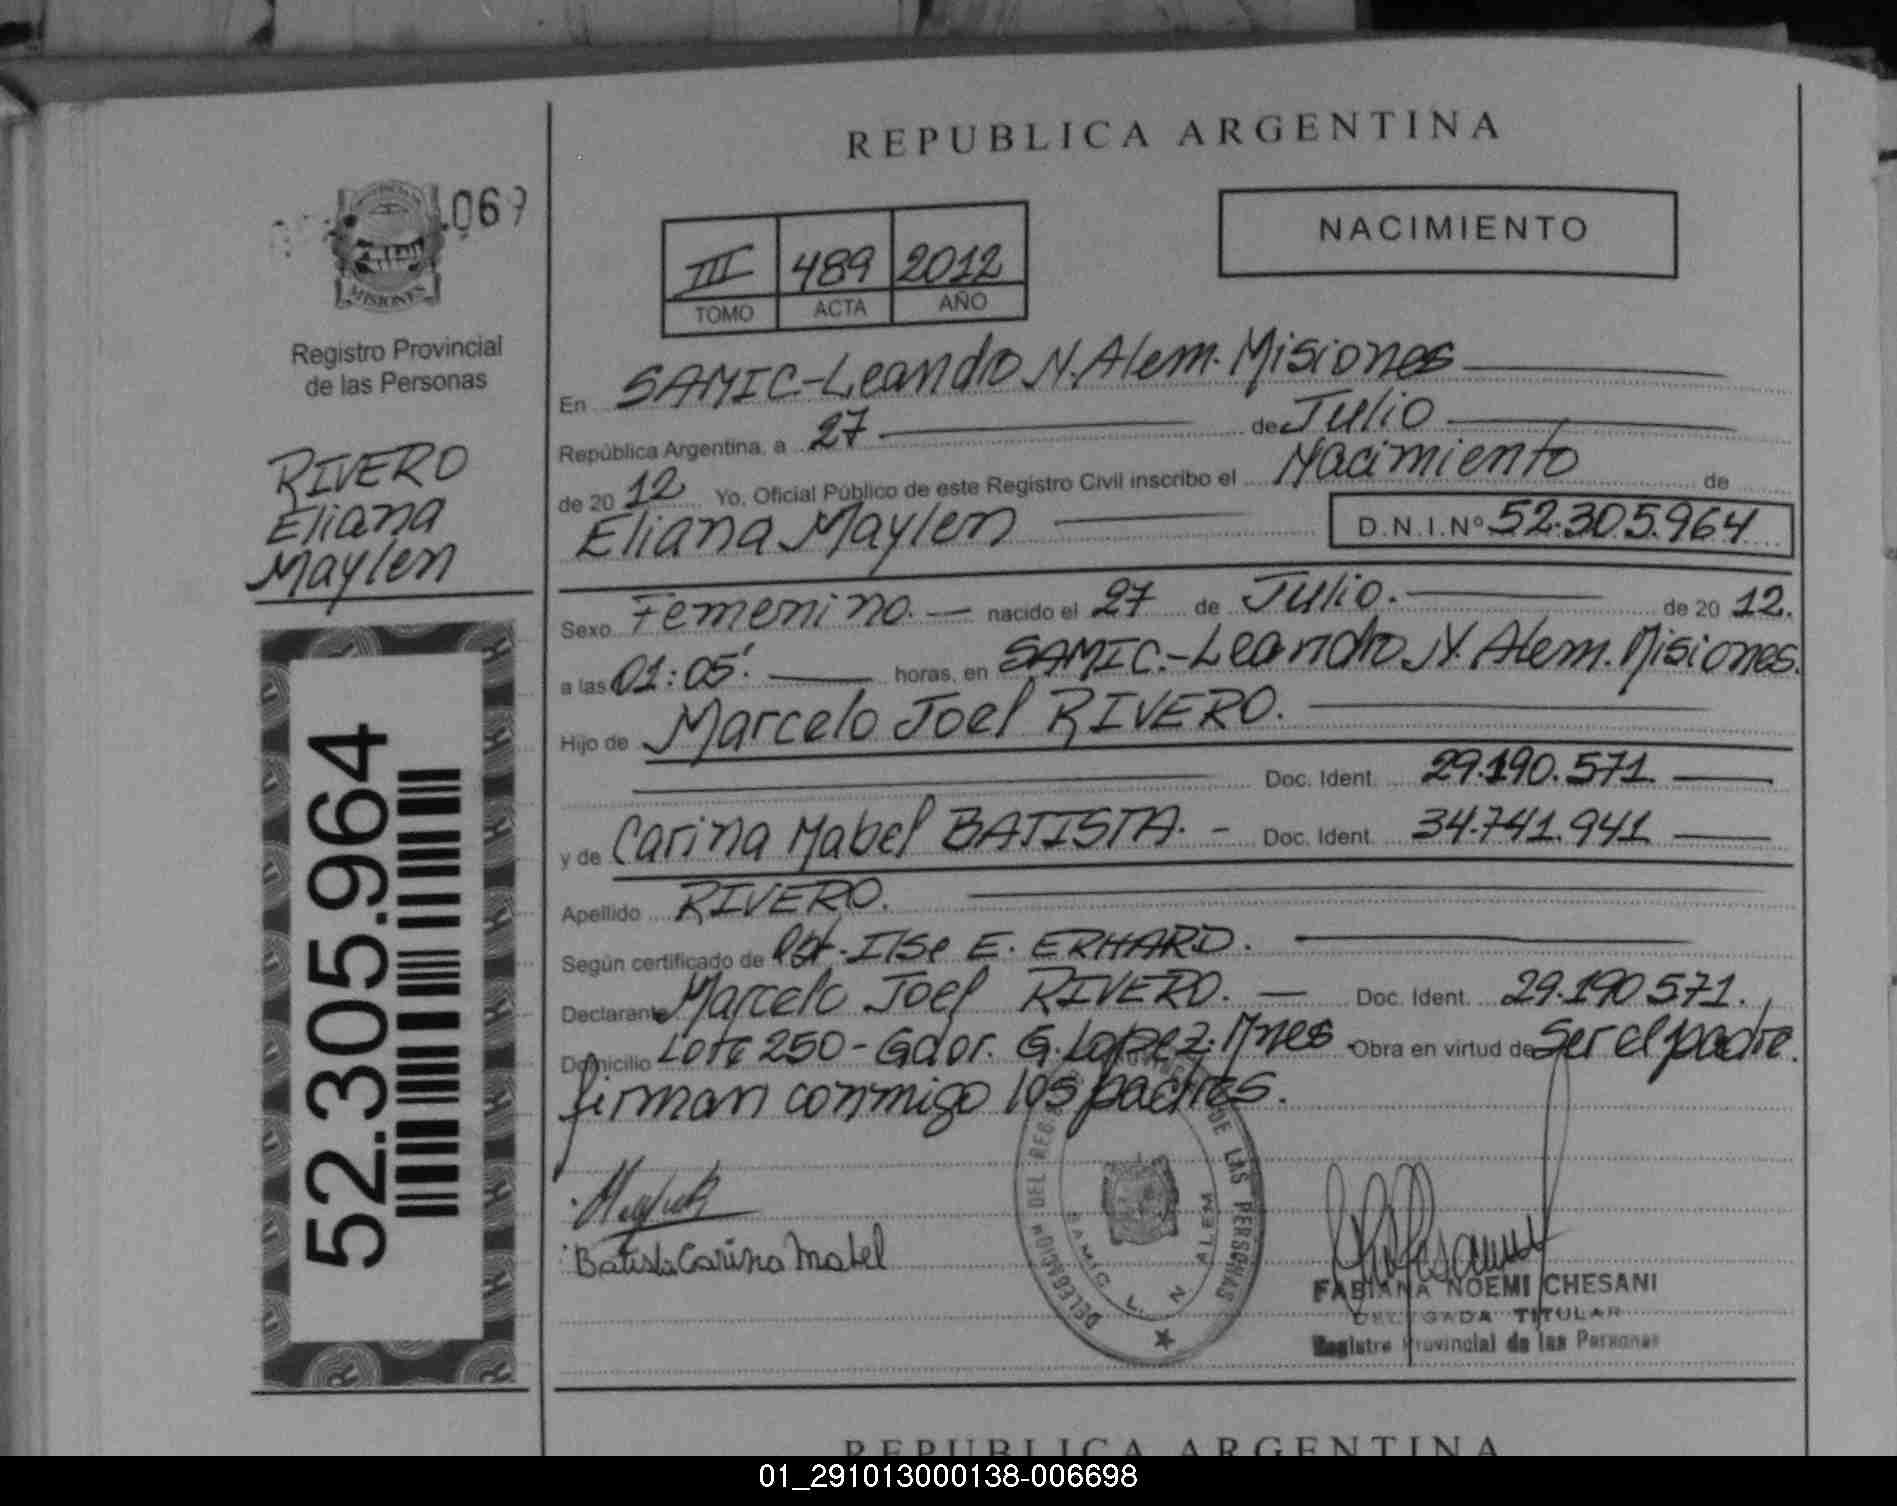 REPUBLICA ARGENTINA
069
MISIONES
Registro Provincial
de las Personas
RIVERO
Eliana
Maylen
52.305.964
III 489 2012
TOMO ACTA AÑO
NACIMIENTO
En SAMIC-Leandro N. Alem. Misiones
República Argentina, a 27 de Julio
de 20 12 Yo, Oficial Público de este Registro Civil inscribo el Nacimiento de
Eliana Maylen D.N.I.Nº 52.305.964
Sexo Femenino. nacido el 27 de Julio. de 20 12.
a las 01:05'. horas, en SAMIC.-Leandro N. Alem. Misiones.
Hijo de Marcelo Joel RIVERO.
Doc. Ident. 29.190.571.
y de Carina Mabel BATISTA. - Doc. Ident. 34.741.941
Apellido RIVERO.
Según certificado de Obst.-Ilse E. ERHARD.
Declarante Marcelo Joel RIVERO. Doc. Ident. 29.190.571.
Domicilio Lote 250-Gdor. G. Lopez. Mnes. Obra en virtud de Ser el padre.
firman conmigo los padres.
Batista Carina Mabel
DELEGACION DEL REG. DE LAS PERSONAS
SAMIC L. N. ALEM
FABIANA NOEMI CHESANI
DELEGADA TITULAR
Registro Provincial de las Personas
REPUBLICA ARGENTINA
01_291013000138-006698